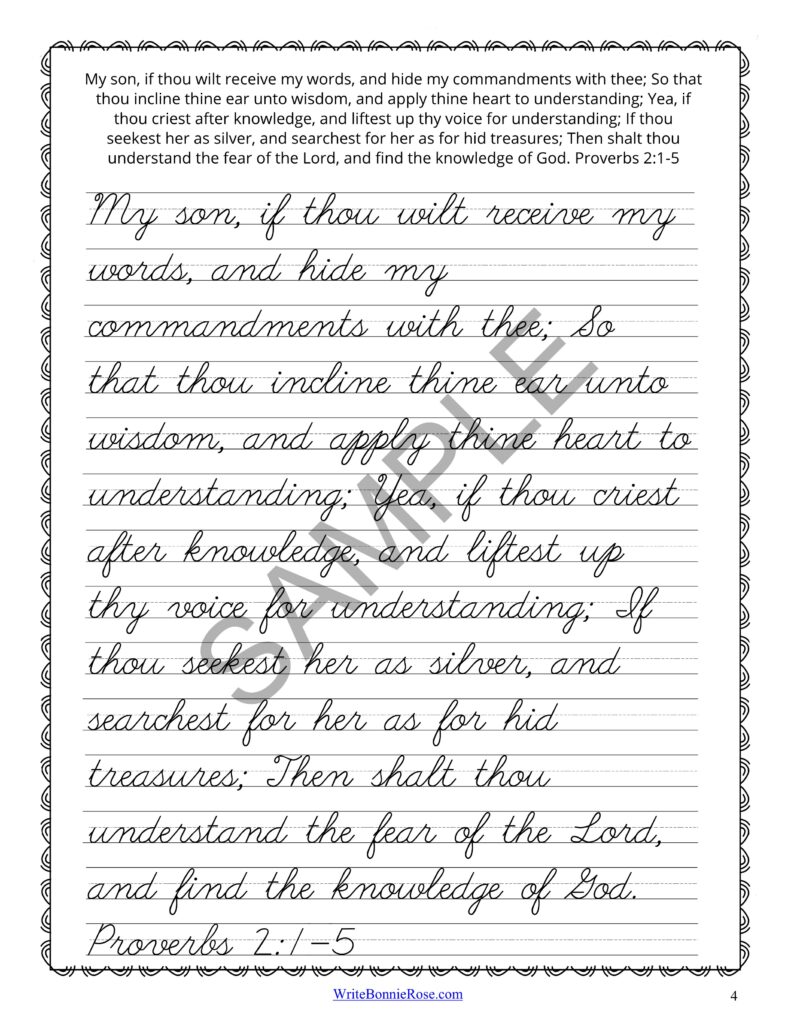 My son, if thou wilt receive my words, and hide my commandments with thee; So that
thou incline thine ear unto wisdom, and apply thine heart to understanding; Yea, if
thou criest after knowledge, and liftest up thy voice for understanding; If thou
seekest her as silver, and searchest for her as for hid treasures; Then shalt thou
understand the fear of the Lord, and find the knowledge of God. Proverbs 2:1-5
My son, if thou wilt receive my
words, and hide my
commandments with thee; So
that thou incline thine ear unto
wisdom, and apply thine heart to
understanding; Yea, if thou criest
after knowledge, and liftest up
thy voice for understanding; If
thou seekest her as silver, and
searchest for her as for hid
treasures; Then shalt thou
understand the fear of the Lord,
and find the knowledge of God.
Proverbs 2:1-5
SAMPLE
WriteBonnieRose.com
4